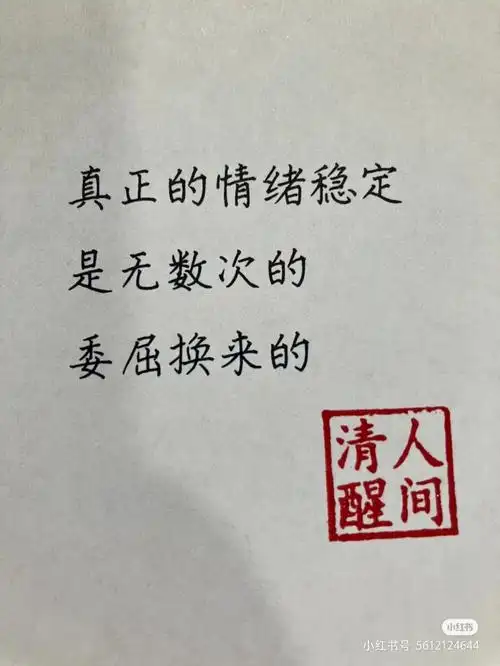 真正的情绪稳定
是无数次的
委屈换来的
人间
清醒
小红书
小红书号 5612124644